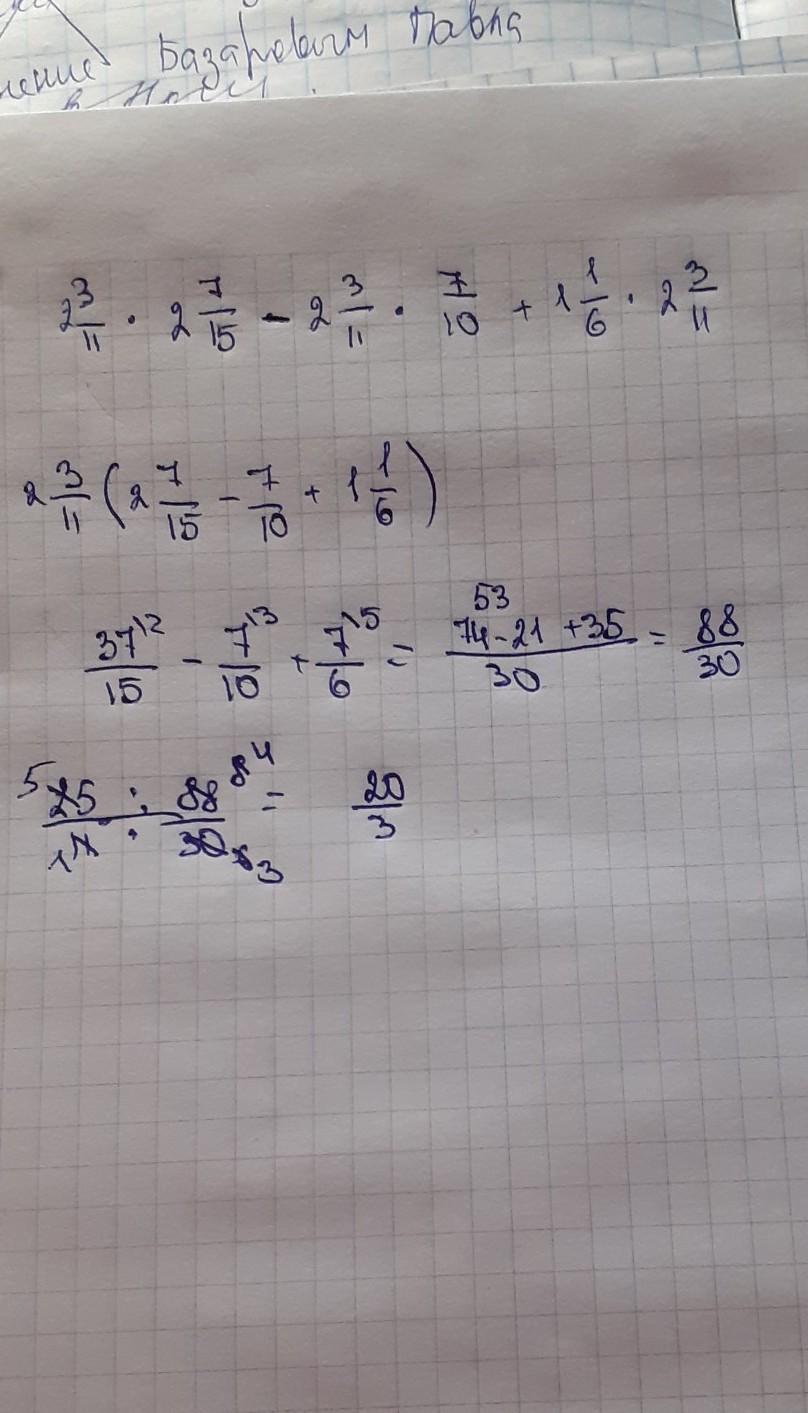 Базаровым Павла
2 3/11 · 2 7/15 - 2 3/11 · 7/10 + 1 1/6 · 2 3/11
2 3/11 (2 7/15 - 7/10 + 1 1/6)
37\2/15 - 7\3/10 + 7\5/6 = 53 74-21+35/30 = 88/30
5 25/11 : 88 8 4/30 6 3 = 20/3